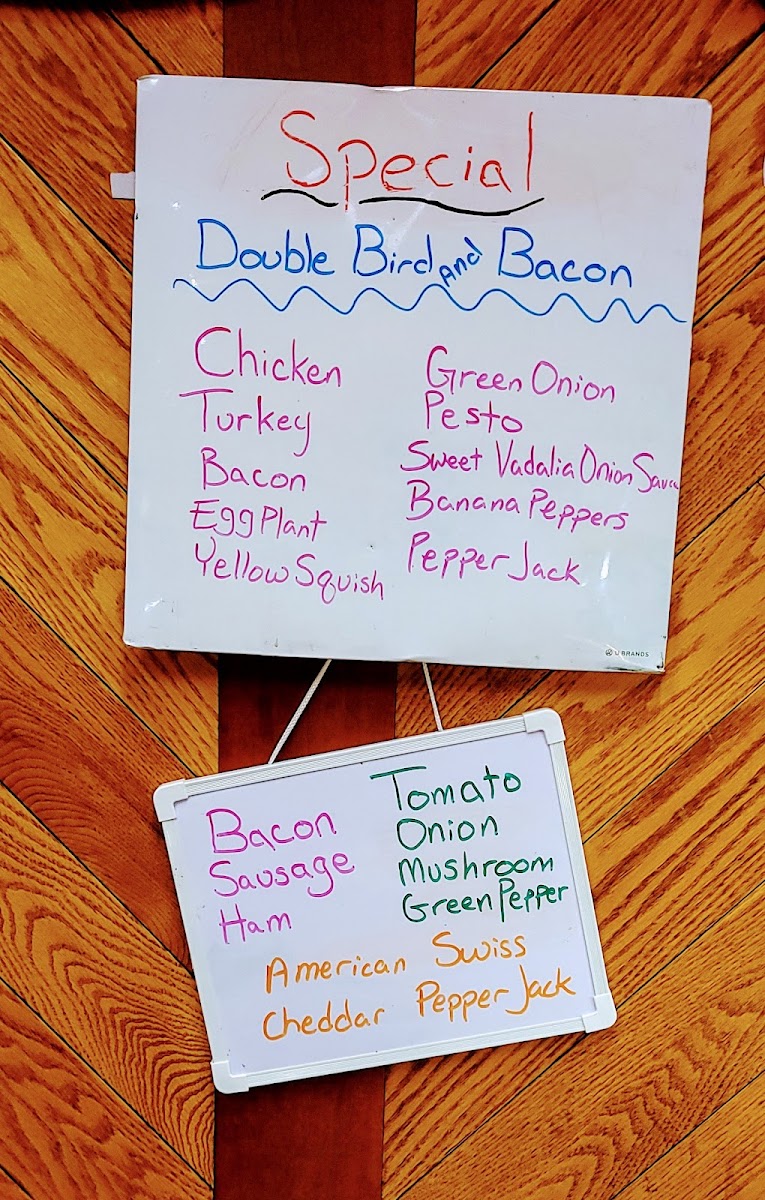 Special
Double Bird and Bacon
Chicken
Turkey
Bacon
Egg Plant
Yellow Squish
Green Onion
Pesto
Sweet Vadalia Onion Sauce
Banana Peppers
Pepper Jack
U BRANDS
Bacon
Sausage
Ham
Tomato
Onion
Mushroom
Green Pepper
American Swiss
Cheddar Pepper Jack